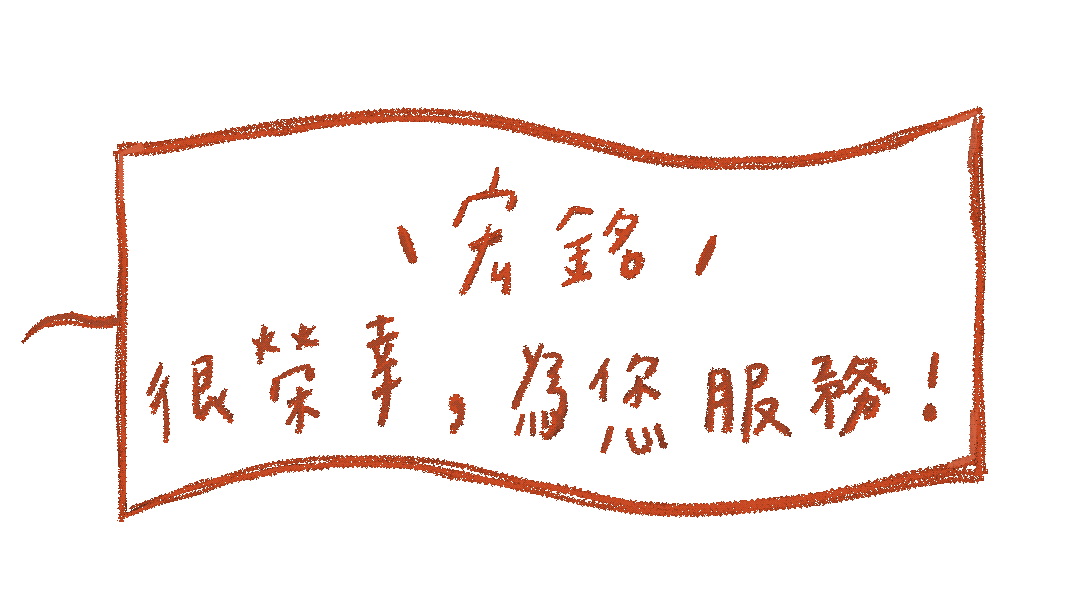 、宏銘,
很榮幸,為您服務!